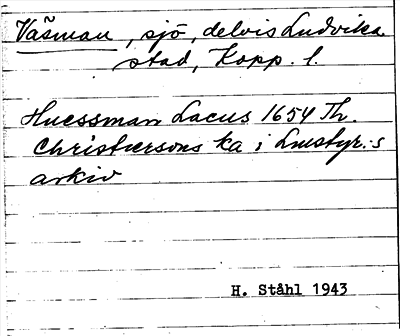 Väsman, sjö, delvis Ludvika
stad, Kopp. l.
Huessman Lacus 1654 Th.
Christiersons ka i Lmstyr:s
arkiv
H. Ståhl 1943